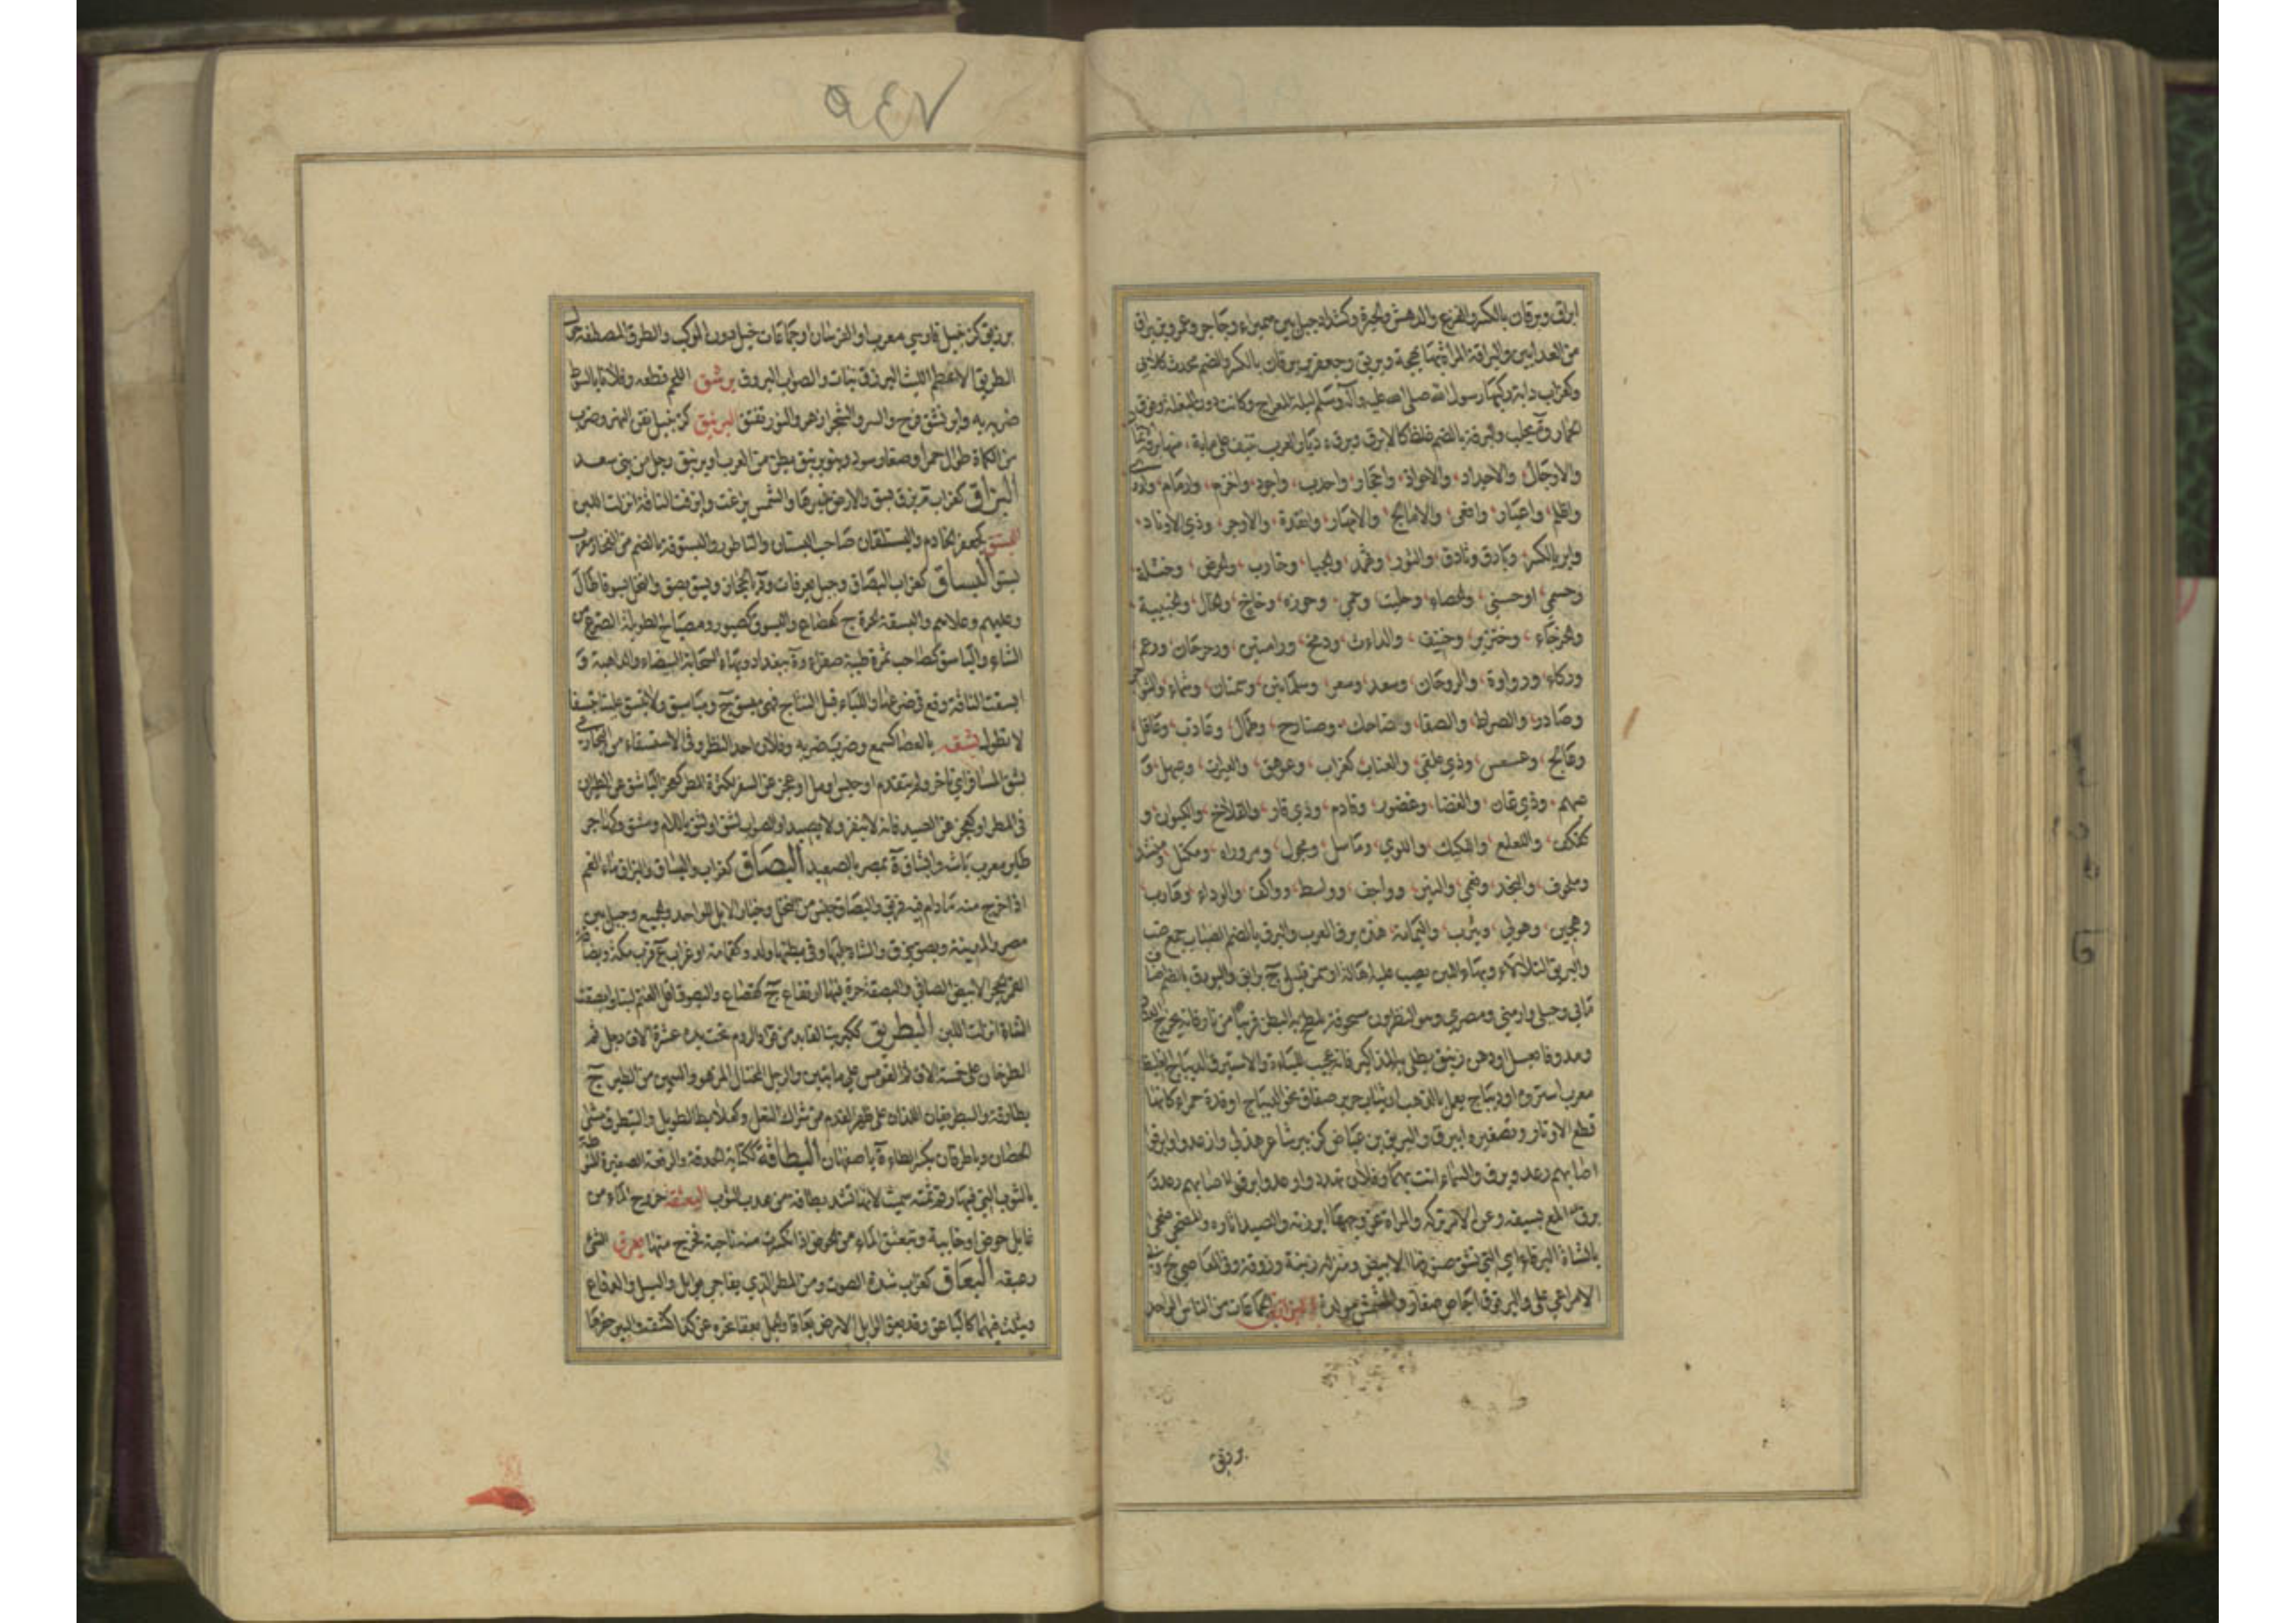 ابراق وبرقان بالكسر والفزع والدهش والحيرة وكشداد جبل بين سميراء وحاجر وعمرو بن براق
من العدائين والبراقة المرأة لها بهجة وبريق وجعفر بن برقان بالكسر والضم محدث كلابي
وكغراب دابة ركبها رسول الله صلى الله عليه وآله وسلم ليلة المعراج وكانت دون البغل وفوق
الحمار وة بحلب والبرقة بالضم غلظ كالابرق وبرق ديار العرب تنيف على مائة منها برقة
والاوجال والاجداد والاجول واحجار واحدب واحواذ واخرم وارمام واروى
واظلم واعيار وافعى والامالح والامهار وانقدة والاوجر وذي الاوداد
واير بالكسر وبارق وثادق والثور وثهمد والجبا وحارب والحرض وحسلة
وحسمى اوحسنى والحصاء وحليت وحمى وحوزة وخاخ والخال والخبيبة
والخرجاء وخنزير وخينف والداءث ودمخ ورامتين ورحرحان ورعم
وركاء ورواوة والروحان وسعد وسعر وسلمانين وسمنان وشماء والشواجن
وصادر والصراة والصفا وضاحك وضارج وطحال وعاذب وعاقل
وعالج وعسعس وذي علقى والعناب كغراب وعوهق والعيرات وعيهل و
عيهم وذي غان والغضا وغضور وقادم وذي قار والقلاخ والكبوان و
لعلع واللكيك واللوى وماسل ومجول ومروراة ومكتل ومنشد
وملحوب والنجد ونعمي والنير وواحف وواسط وواكف والوداء
وهجين وهولى ويثرب واليمامة هذه برق العرب والبرق بالضم الضباب جمع ضب
والبريق التلألؤ وبهاء اللبن يصب عليه اهالة او سمن قليل ج برائق والبورق بالضم اصناف
مائي وجبلي وارمني ومصري وهو النطرون مسحوقه يلطخ به البطن قريبا من نار فانه يخرج الدود
ومدوفا بعسل او دهن زنبق يطلى به المذاكير فانه عجيب للباءة والاستبرق الديباج الغليظ
معرب استروه او ديباج يعمل بالذهب او ثياب حرير صفاق نحو الديباج او قدة حمراء كانها
قطع الاوتار وتصغيره ابيرق والبريق بن عياض كزبير شاعر هذلي وارعدوا وابرقوا
اصابهم رعد وبرق والسماء اتت بهما وفلان تهدد واوعد وابرق
برق المع بسيفه وعن الامر تركه والمراة عن وجهها ابرزته والصيد اثاره والمضحي ضحى
بالشاة البرقاء اي التي تشق صوفها الابيض ومنزله زينه وزوقه وفي المعاصي لج
الامر اعيى علي والبرقوق اجاص صغار والمشمش مولدة البرازيق الجماعات من الناس الواحد
برزيق
٩٤٧
برزيق كزنجبيل فارسي معرب او الفرسان او جماعات خيل دون الموكب والطرق المصطفة حول
الطريق الاعظم الليث البرزق نبات والصواب البروق برشق اللحم قطعه وفلانا بالسوط
ضربه به وابرنشق فرح وسر والشجر ازهر والنور تفتق البرنيق كزنجبيل تقن النهر وضرب
من الكماة طوال حمر او صغار سود وبنو برنيق بطن من العرب او برنيق رجل من بني سعد
البزاق كغراب م بزق بسق والارض بذرها والشمس بزغت وابزقت الناقة انزلت اللبن
البستق كجعفر الخادم والبستقان صاحب البستان والناطور والبستوقة بالضم من الفخار معرب
بستو البساق كغراب البصاق وجبل بعرفات ود بالحجاز وبسق بصق والنخل بسوقا طال
وعليهم وعلاهم والبسقة الحرة ج كقصاع والبسوق كصبور ومصباح الطويلة الضرع من
الشاء والباسق كصاحب ثمرة طيبة صفراء وة ببغداد وبهاء السحابة البيضاء والداهية و
ابسقت الناقة وقع في ضرعها اللباء قبل النتاج فهي مبسق ج مباسق ولا تبسق علينا تبسيقا
لا تطول بشقه بالعصا كسمع وضرب ضربه وفلان احد النظر وفي الاستسقاء من البخاري
بشق المسافر اي تاخر ولم يتقدم او حبس او مل او عجز عن السفر لكثرة المطر كعجز الباشق عن الطيران
في المطر او لعجزه عن الصيد فانه لا ينفر ولا يصيد او الصواب لشق او لثق باللام ومشق وكهاجر
طائر معرب باشه وابشاق ة بمصر بالصعيد البصاق كغراب والبساق والبزاق ماء الفم
اذا خرج منه ما دام فيه فريق والبصاق جنس من النخل وخيار الابل للواحد والجميع وجبل بين
مصر والمدينة وبصق بزق والشاة حلبها وفي بطنها ولد وكثمامة او غراب ع قرب مكة
القمر الحجر الابيض الصافي والبصقة حرة فيها ارتفاع ج كقصاع والبصوق اقل الغنم لبنا وابصقت
الشاة انزلت اللبن البطريق ككبريت القائد من قواد الروم تحت يده عشرة الاف رجل ثم
الطرخان على خمسة الاف ثم القومس على مايتين والرجل المختال المزهو والسمين من الطير ج
بطارقة والبطريقان اللذان على ظهر القدم من شراك النعل وكعلابط الطويل والتبطرق مشي
الحصان وباطرقان بكسر الطاء ة باصفهان البطاقة ككتابة الحدقة والرقعة الصغيرة المنوطة
بالثوب التي فيها رقم ثمنه سميت لانها تشد بطاقة من هدب الثوب البعثقة خروج الماء من
غائل حوض او خابية وتبعثق الماء من الحوض اذا انكسرت منه ناحية فخرج منها بعزق الشئ
زعبقه البعاق كغراب شدة الصوت ومن المطر الذي يفاجئ بوابل والسيل الدفاع
ويثلث فيهما كالباعق وقد بعق الوابل الارض بعاقا والجمل بعقا نحره وعن كذا كشف والبئر حفرها